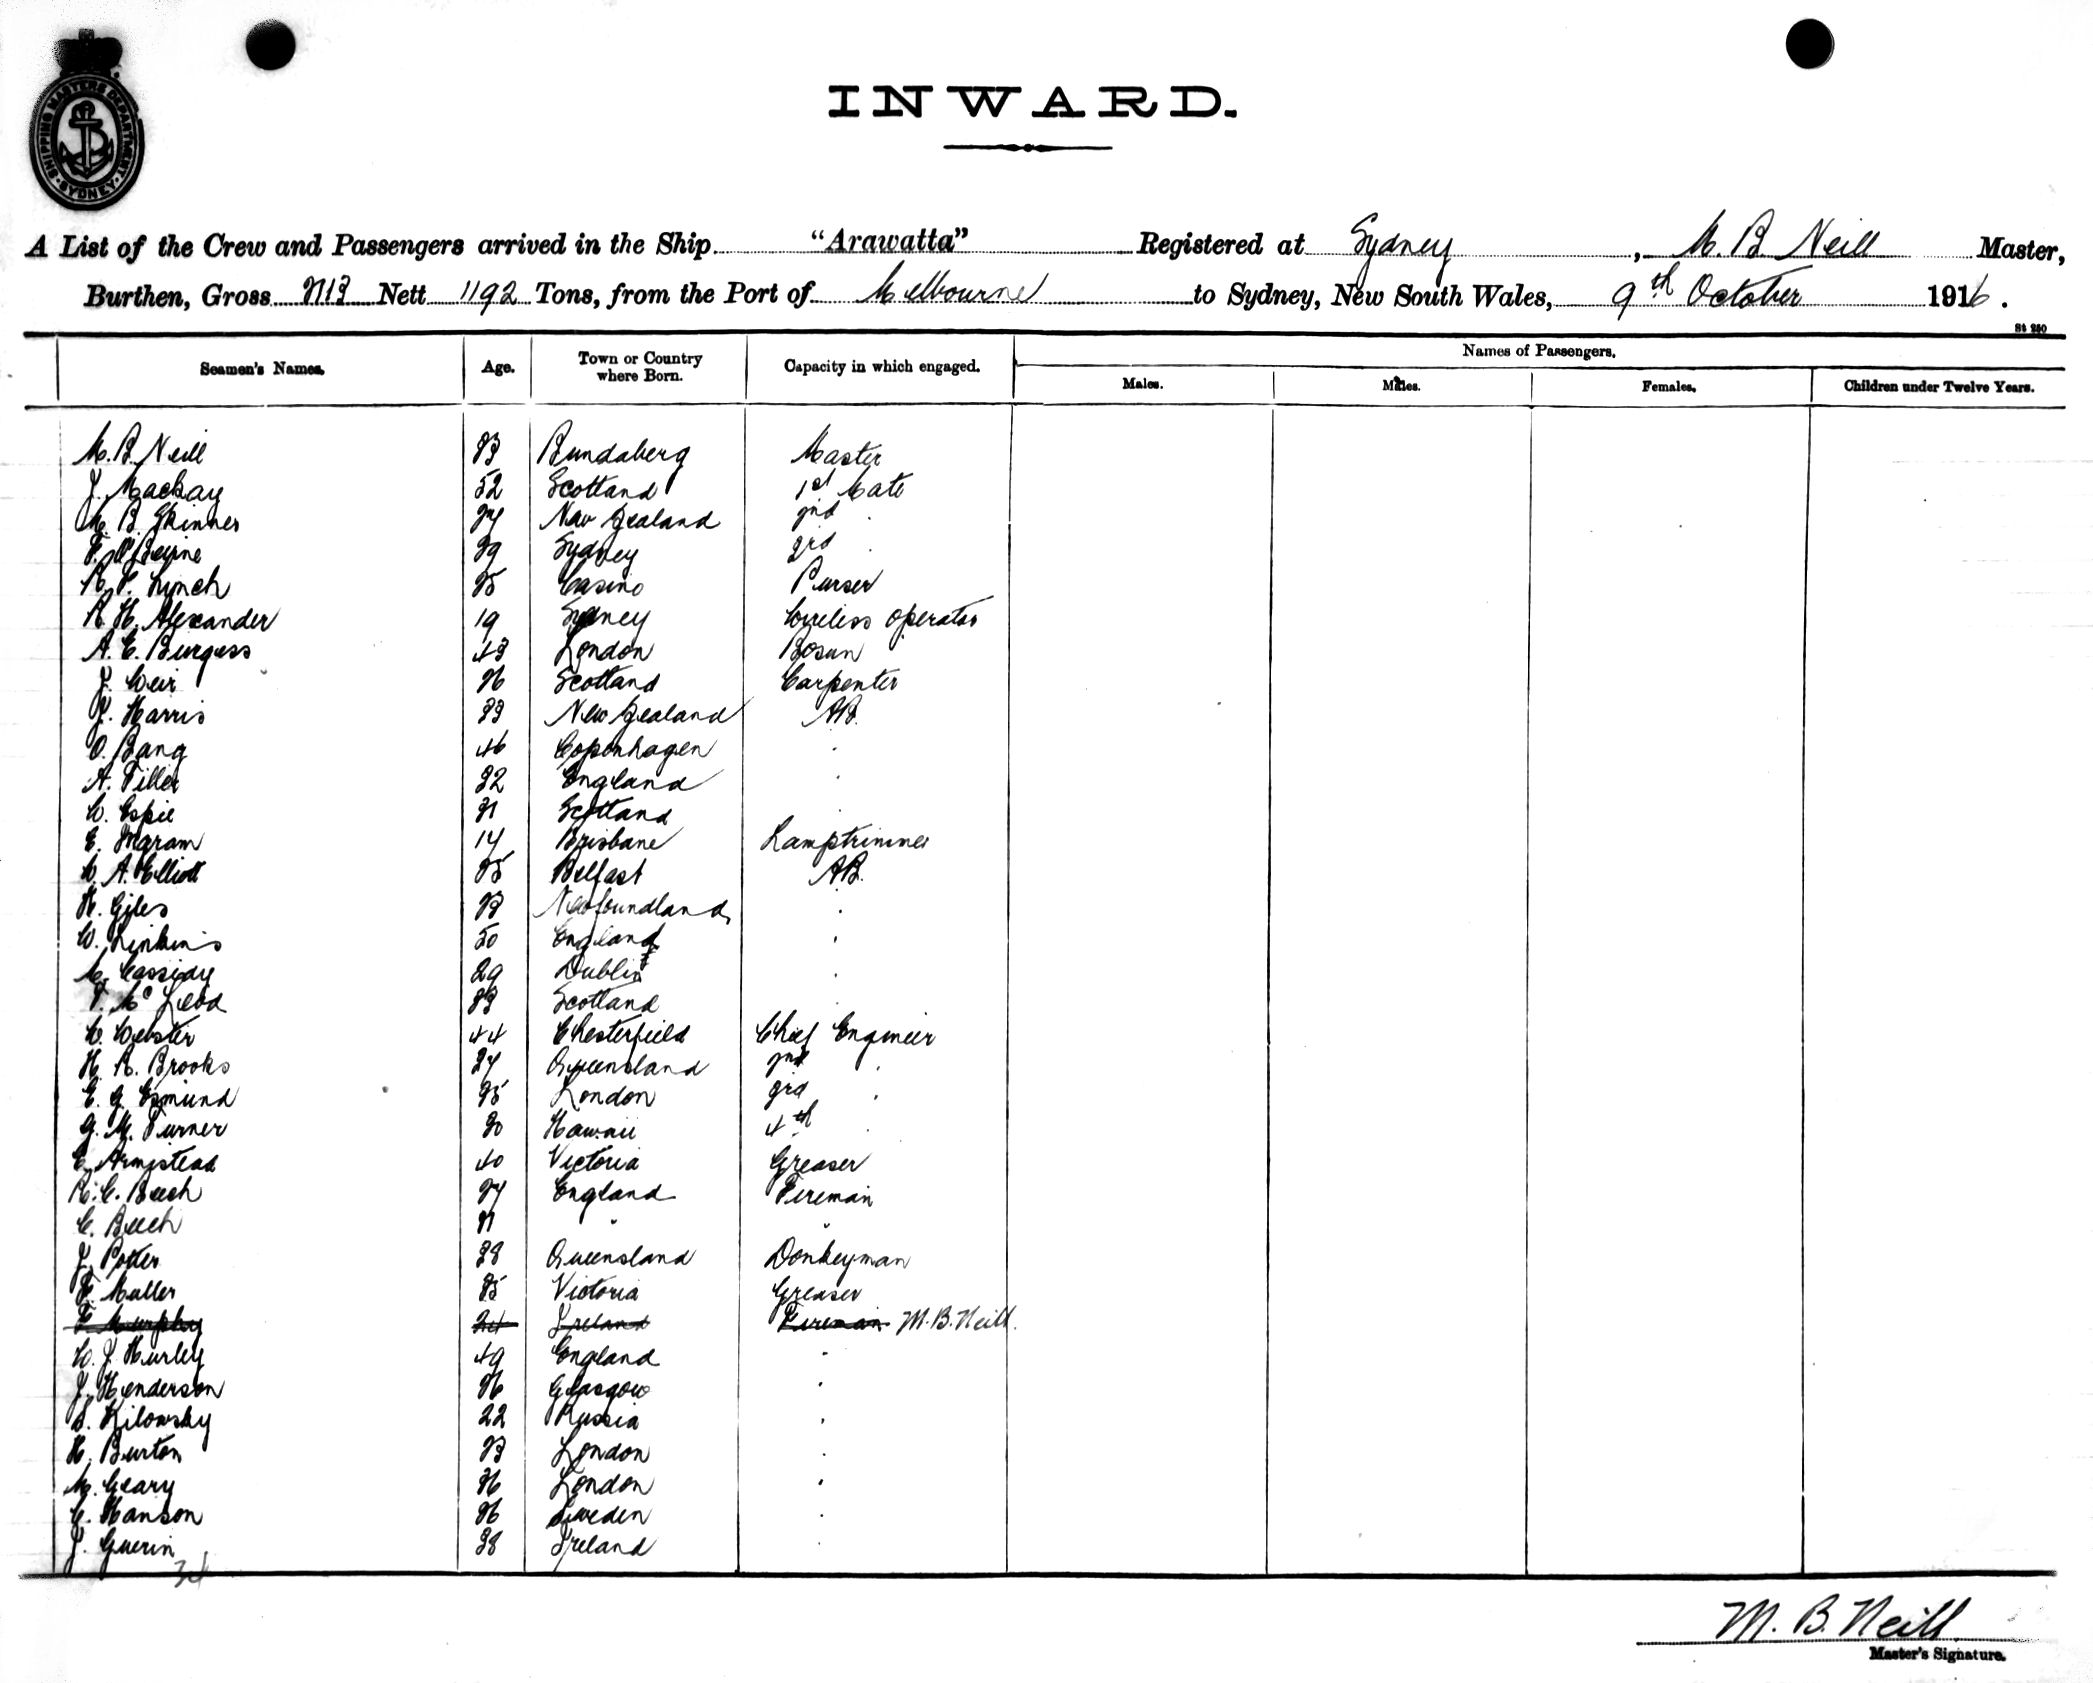 SHIPPING MASTERS DEPARTMENT SYDNEY
INWARD.
A List of the Crew and Passengers arrived in the Ship "Arawatta" Registered at Sydney, M. B. Neill Master,
Burthen, Gross 2113 Nett 1192 Tons, from the Port of Melbourne to Sydney, New South Wales, 9th October 1916.
St 250
Names of Passengers.
Seamen's Names. Age. Town or Country where Born. Capacity in which engaged. Males. Males. Females. Children under Twelve Years.
M. B. Neill Bundaberg Master
J. Mackay 52 Scotland 1st Mate
M. B. Skinner New Zealand 2nd "
Sydney 3rd "
R. P. Lynch Casino Purser
R. H. Alexander 19 Sydney Wireless operator
A. E. Burgess 43 London Bosun
J. Weir Scotland Carpenter
J. Harris 33 New Zealand AB.
O. Bang 46 Copenhagen "
A. Tiller 32 England "
W. Espie Scotland "
E. Ingram Brisbane Lamptrimmer
W. A. Elliott Belfast AB.
H. Giles Newfoundland "
W. 50 England "
M. Cassidy 29 Dublin "
T. McLeod Scotland "
W. Webster 44 Chesterfield Chief Engineer
H. R. Brooks Queensland 2nd "
E. G. Esmund London 3rd "
G. M. Turner 30 Hawaii 4th "
C. Armistead 40 Victoria Greaser
R. C. Beech England Fireman
C. Beech " "
J. Potter 38 Queensland Donkeyman
F. Muller Victoria Greaser
F. Murphy 34 Ireland Fireman M. B. Neill.
W. J. Hurley 49 England "
J. Henderson Glasgow "
S. Kilowsky 22 Russia "
H. Burton London "
M. Geary London "
C. Hanson Sweden "
J. Guerin 38 Ireland "
34
M. B. Neill
Master's Signature.